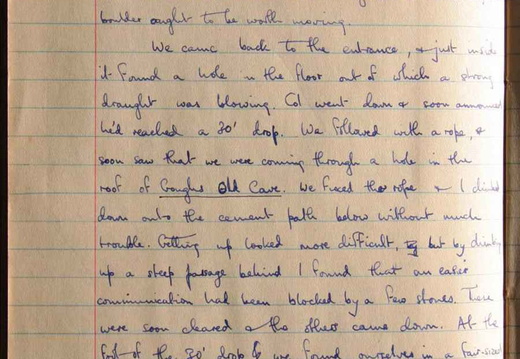 boulder ought to be worth moving.
We came back to the entrance, & just inside
it found a hole in the floor out of which a strong
draught was blowing. Col went down & soon announced
he'd reached a 30' drop. We followed with a rope, &
soon saw that we were coming through a hole in the
roof of Goughs Old Cave. We fixed the rope & I climbed
down onto the cement path below without much
trouble. Getting up looked more difficult, but by climbing
up a steep passage behind I found that an easier
communication had been blocked by a few stones. These
were soon cleared & the others came down. At the
foot of the 30' drop we found ourselves in a fair-sized